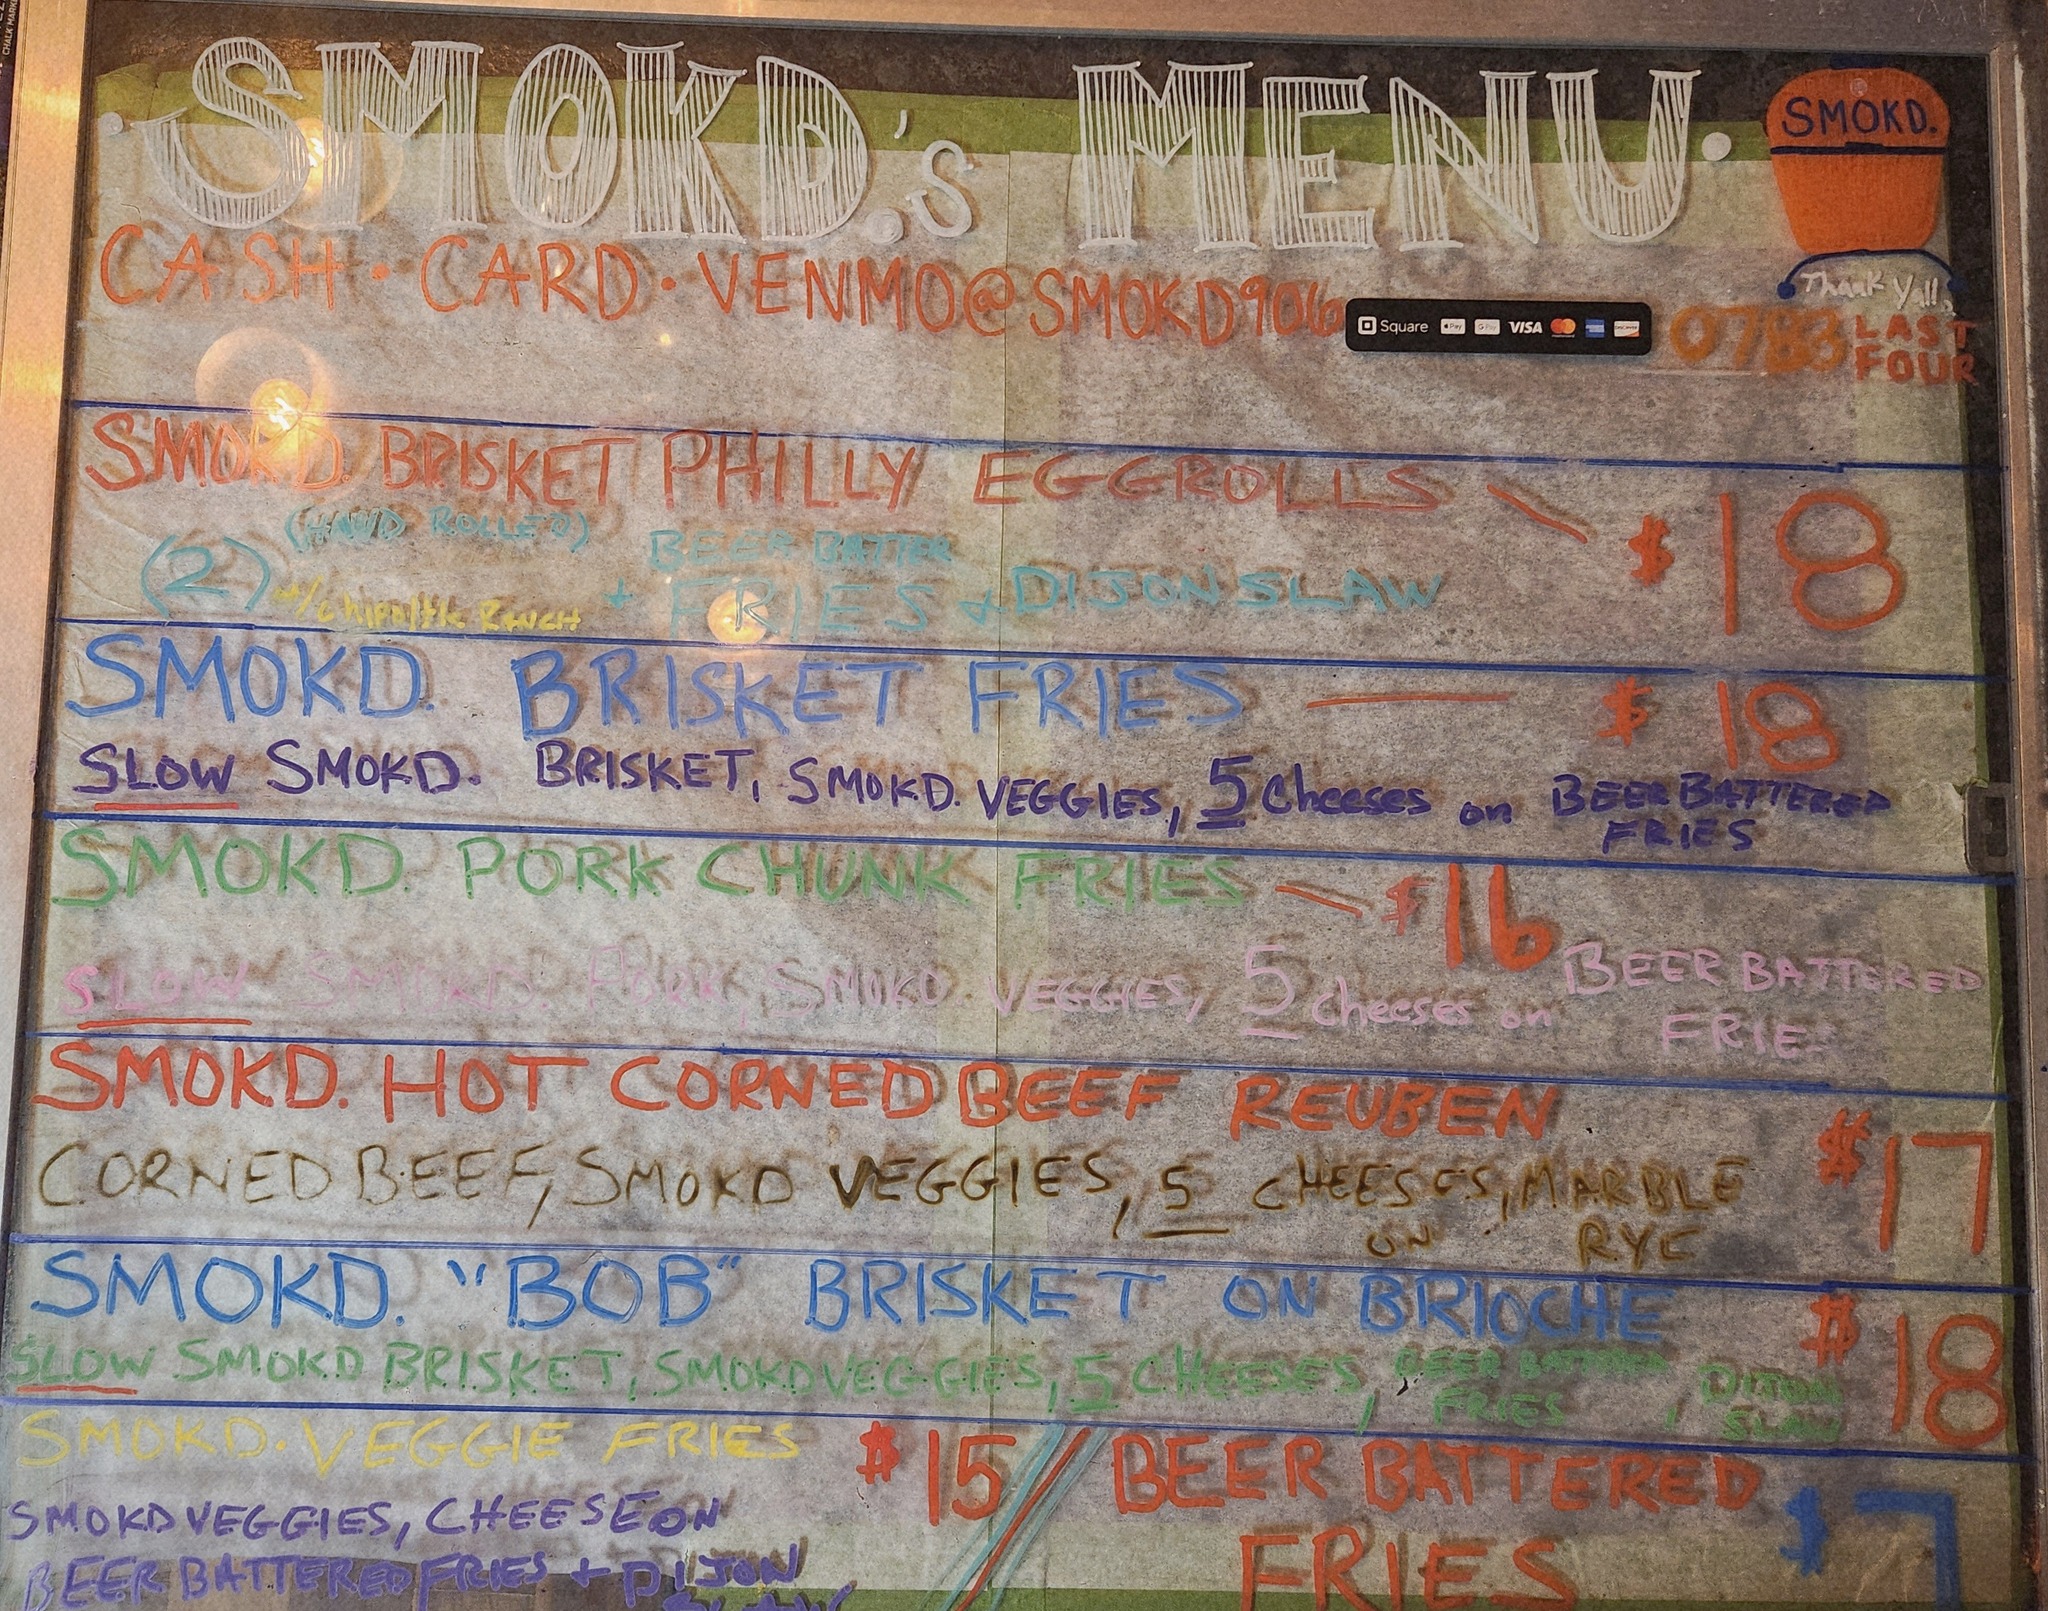 CHALK MARK
SMOKD.'s MENU.
SMOKD.
CASH • CARD • VENMO@SMOKD906
Square Pay G Pay VISA mastercard AMEX DISCOVER
0783 LAST FOUR
Thank Y'all,
SMOKD. BRISKET PHILLY EGGROLLS — $18
(HAND ROLLED)
(2) w/chipotle RANCH + BEER BATTER FRIES + DIJON SLAW
SMOKD. BRISKET FRIES — $18
SLOW SMOKD. BRISKET, SMOKD. VEGGIES, 5 cheeses on BEER BATTERED
FRIES
SMOKD. PORK CHUNK FRIES — $16
SLOW SMOKD. PORK, SMOKD. VEGGIES, 5 cheeses on BEER BATTERED
FRIE
SMOKD. HOT CORNED BEEF REUBEN $17
CORNED BEEF, SMOKD VEGGIES, 5 CHEESES, MARBLE
ON RYE
SMOKD. "BOB" BRISKET ON BRIOCHE $18
SLOW SMOKD BRISKET, SMOKD VEGGIES, 5 CHEESES, BEER BATTERED FRIES, DIJON SLAW
SMOKD. VEGGIE FRIES $15 // BEER BATTERED
FRIES $7
SMOKD VEGGIES, CHEESE ON
BEER BATTERED FRIES + DIJON